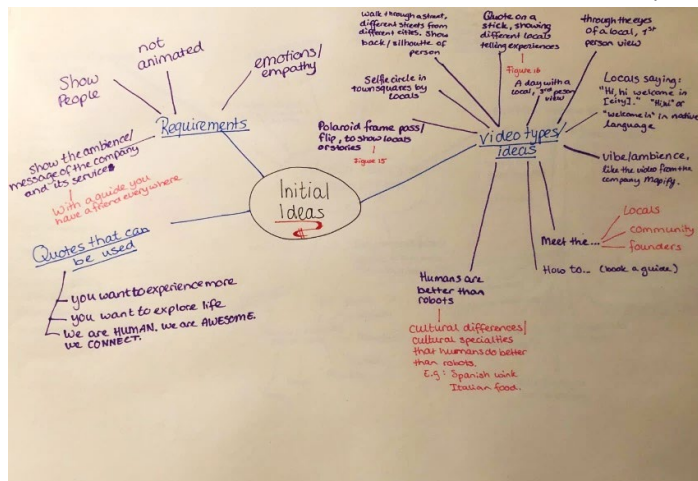 Initial
Ideas
Requirements
Show
People
not
animated
emotions/
empathy
Show the ambience/
message of the company
and its services
With a guide you
have a friend everywhere
Quotes that can
be used
you want to experience more
you want to explore life
We are HUMAN. We are AWESOME.
We CONNECT.
Video types/
ideas
walk through a street,
different streets from
different cities. Show
back/silhoutte of
person
Quote on a
stick, showing
different locals
telling experiences
Figure 16
through the eyes
of a local, 1st
person view
Selfie circle in
town squares by
locals
A day with a
local, 3rd person
view
Locals saying:
"Hi, hi welcome in
[city]." "Hihi" or
"welcome in" in native
language
Polaroid frame pass/
flip, to show locals
or stories
Figure 15
vibe/ambience,
like the video from the
company Mapify.
Meet the...
Locals
community
founders
How to... (book a guide)
Humans are
better than
robots
cultural differences/
cultural specialties
that humans do better
than robots.
E.g: Spanish wink
Italian food.